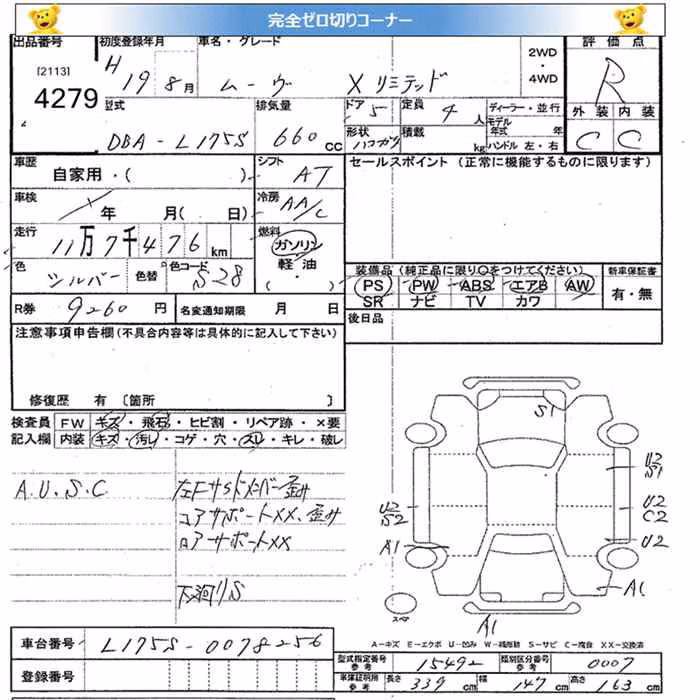 完全ゼロ切りコーナー
出品番号 初度登録年月 車名・グレード 2WD・4WD 評価点
[2113]
4279
H 19 8月 ムーヴ Xリミテッド R
型式 排気量 ドア 定員 ディーラー・並行 外装 内装
DBA-L175S 660cc 5 4人 モデル年式 年
形状 積載 kg ハンドル 左・右 C C
車歴 自家用・( ) シフト AT セールスポイント (正常に機能するものに限ります)
車検 年 月( 日) 冷房 AA/C
走行 11万7千476km 燃料 ガソリン・軽油・( )
色 シルバー 色替 色コード S28 装備品 (純正品に限り○をつけてください) 新車保証書
PS PW ABS エアB AW 有・無
SR ナビ TV カワ
R券 9260円 名変通知期限 月 日 後日品
注意事項申告欄(不具合内容等は具体的に記入して下さい)
修復歴 有 [箇所 ]
検査員記入欄 FW キズ・飛石・ヒビ割・リペア跡・×要
内装 キズ・汚レ・コゲ・穴・スレ・キレ・破レ
A.U.S.C 左Fサイドメンバー歪み
コアサポートXX、歪み
ロアサポートXX
下廻りS
S1
U2
S1
U2
S2
U2
C2
A1
U2
A1
スペア
A1
A-キズ E-エクボ U-凹み W-補修跡 S-サビ C-腐食 XX-交換済
車台番号 L175S-0078256 型式指定番号 参考 15492 類別区分番号 参考 0007
登録番号 車検証明所 参考 長さ 339cm 幅 147cm 高さ 163cm